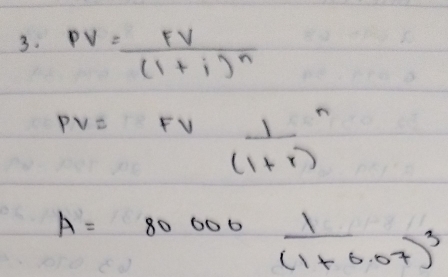 3. PV = FV / (1 + i)^n
PV = FV 1 / (1 + r) ^n
A = 80 000 1 / (1 + 0.07)^3